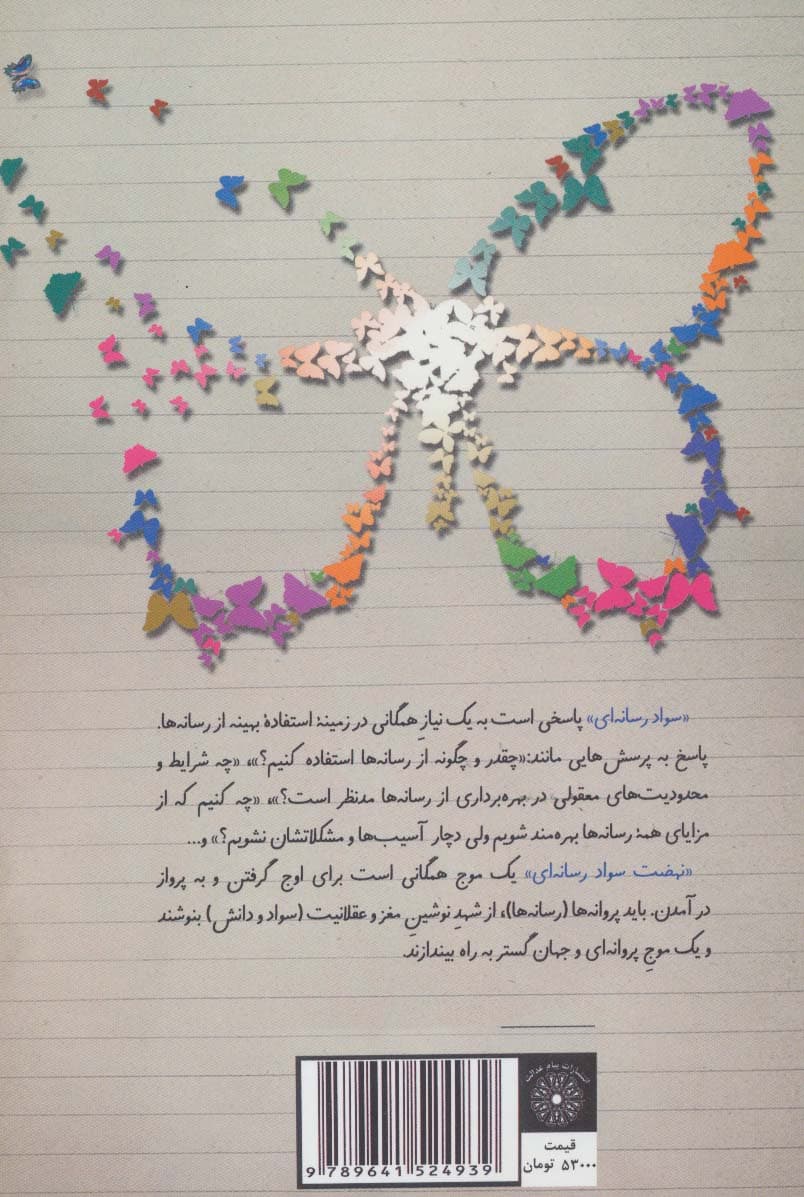 «سواد رسانه‌ای» پاسخی است به یک نیازِ همگانی در زمینهٔ استفادهٔ بهینه از رسانه‌ها.
پاسخ به پرسش‌هایی مانند:«چقدر و چگونه از رسانه‌ها استفاده کنیم؟»، «چه شرایط و
محدودیت‌های معقولی در بهره‌برداری از رسانه‌ها مدنظر است؟»، «چه کنیم که از
مزایای همهٔ رسانه‌ها بهره‌مند شویم ولی دچار آسیب‌ها و مشکلاتشان نشویم؟» و...
«نهضت سواد رسانه‌ای» یک موج همگانی است برای اوج گرفتن و به پرواز
در آمدن. باید پروانه‌ها (رسانه‌ها)، از شهدِ نوشینِ مغز و عقلانیت (سواد و دانش) بنوشند
و یک موجِ پروانه‌ای و جهان گستر به راه بیندازند.
انتشارات پیام عدالت
قیمت
۵۳۰۰۰ تومان
9 789641 524939